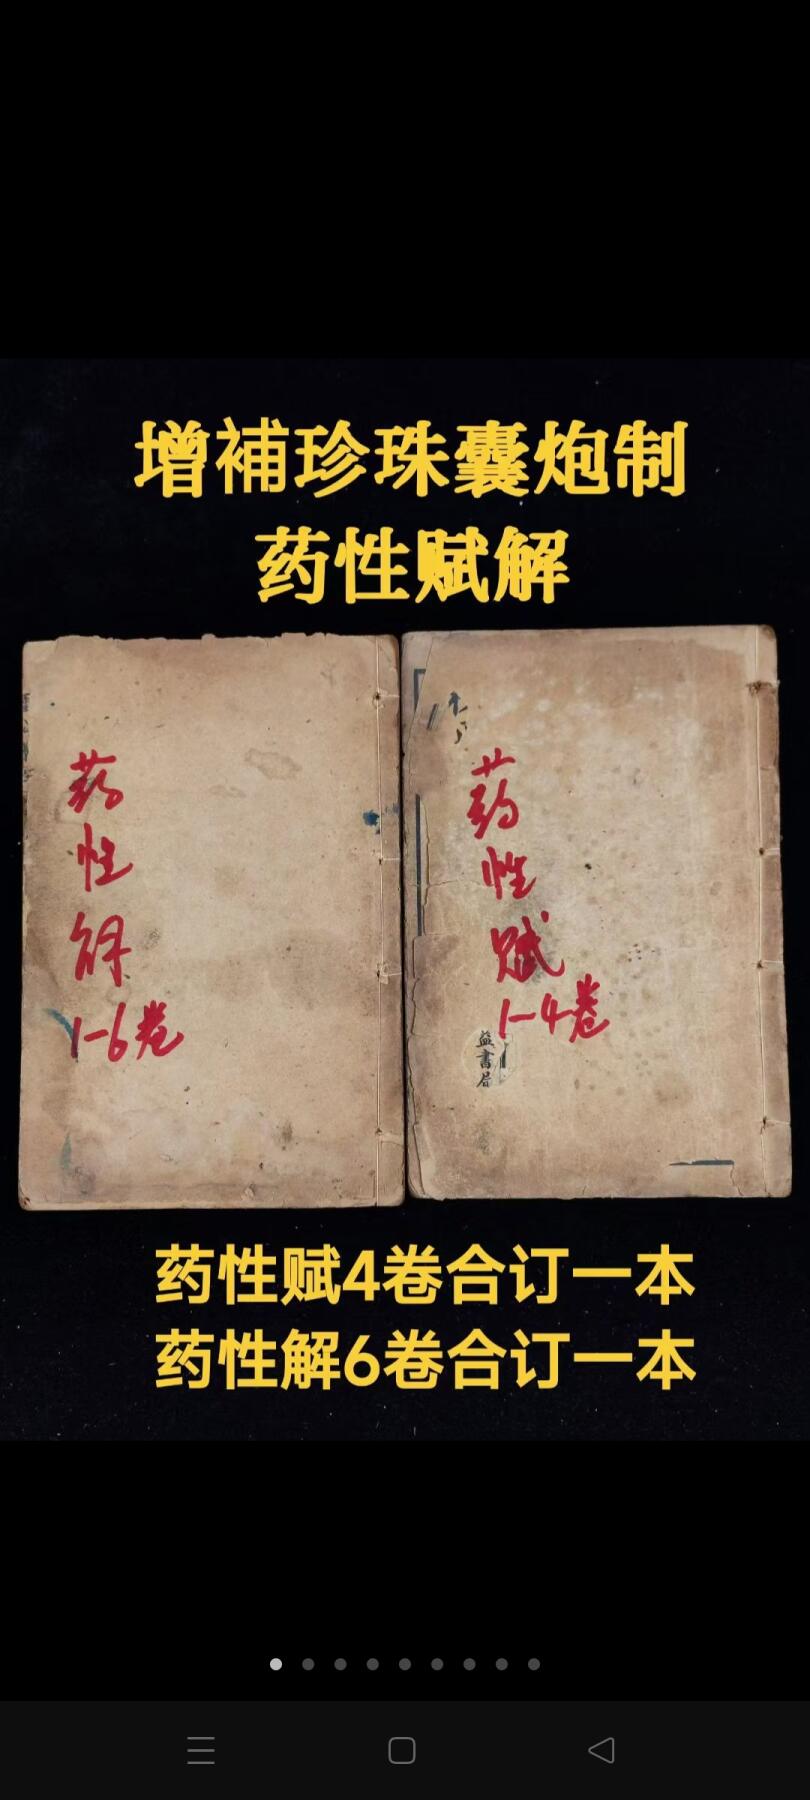 增補珍珠囊炮制
药性赋解
药性解
1-6卷
药性赋
1-4卷
益書局
药性赋4卷合订一本
药性解6卷合订一本